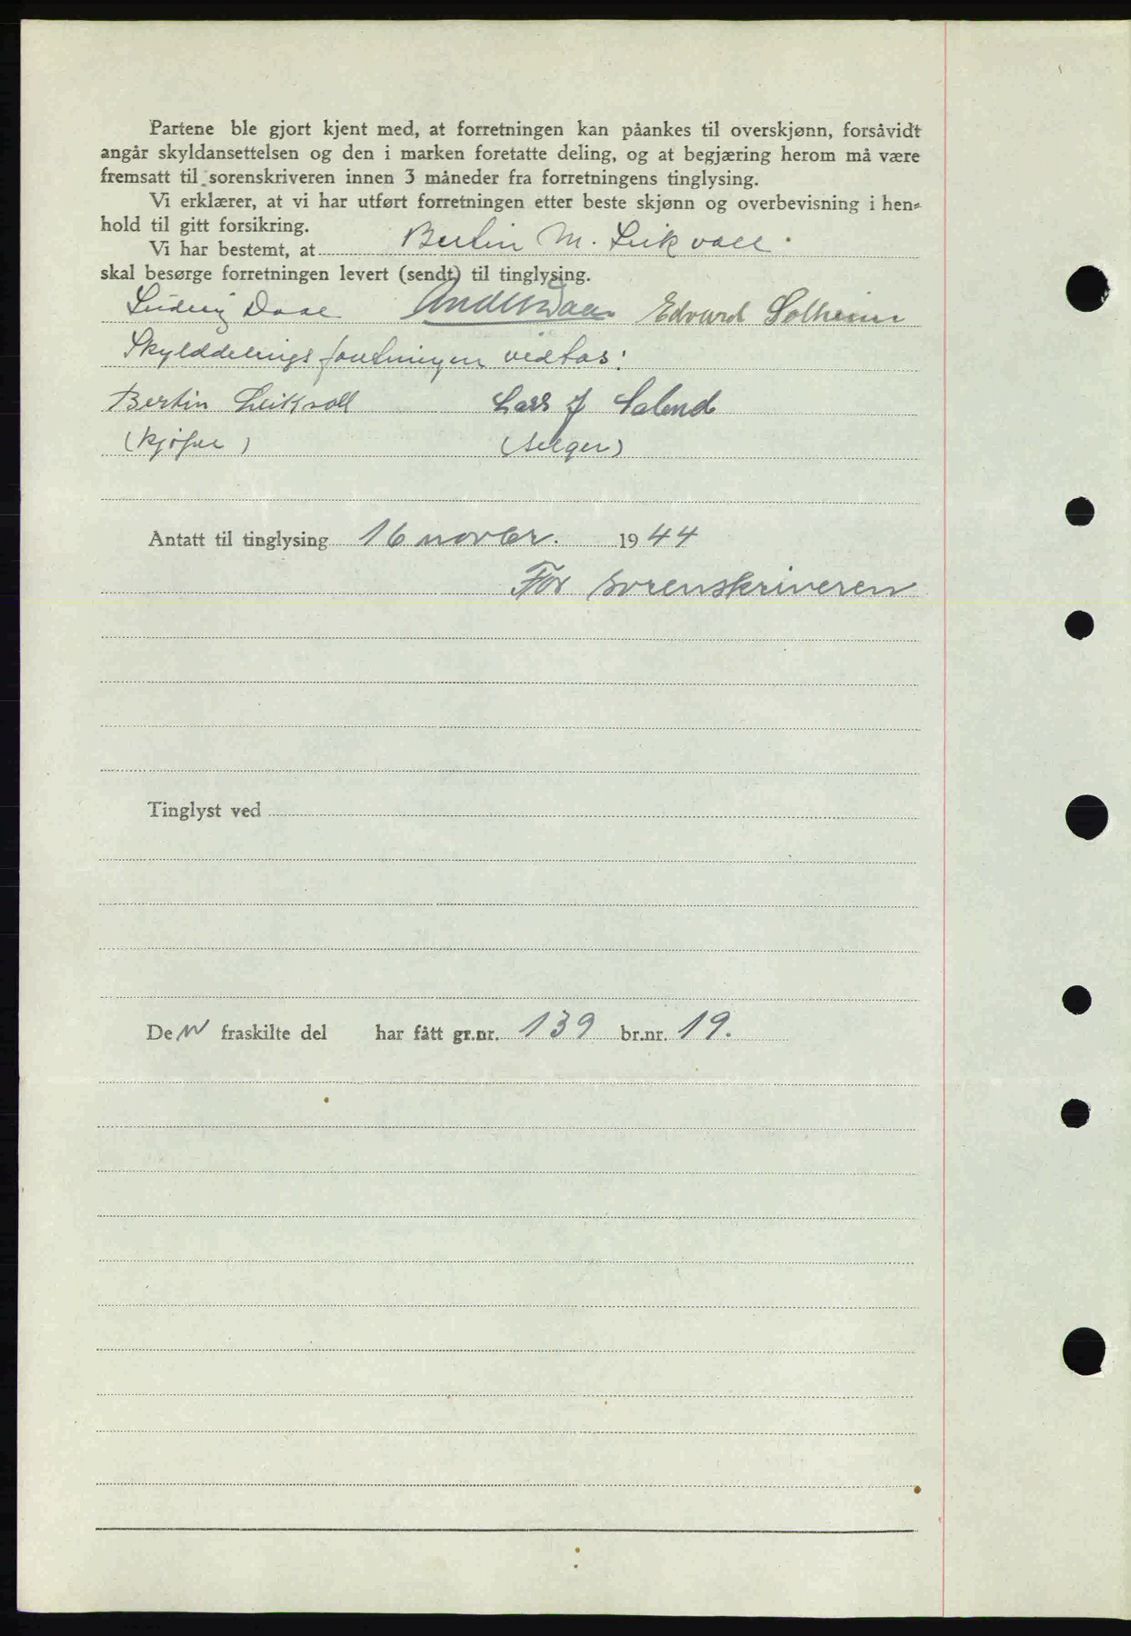 Partene ble gjort kjent med, at forretningen kan påankes til overskjønn, forsåvidt
angår skyldansettelsen og den i marken foretatte deling, og at begjæring herom må være
fremsatt til sorenskriveren innen 3 måneder fra forretningens tinglysing.
Vi erklærer, at vi har utført forretningen etter beste skjønn og overbevisning i hen-
hold til gitt forsikring.
Vi har bestemt, at Bertin M. Leikvoll.
skal besørge forretningen levert (sendt) til tinglysing.
Ludvig Daae Anders Daae Edvard Solheim
Skylddelingsforretningen vedtas:
Bertin Leikvoll Lars J
(kjøper) (selger)
Antatt til tinglysing 16 novbr. 1944
For sorenskriveren
Tinglyst ved
Den fraskilte del har fått gr.nr. 139 br.nr. 19.